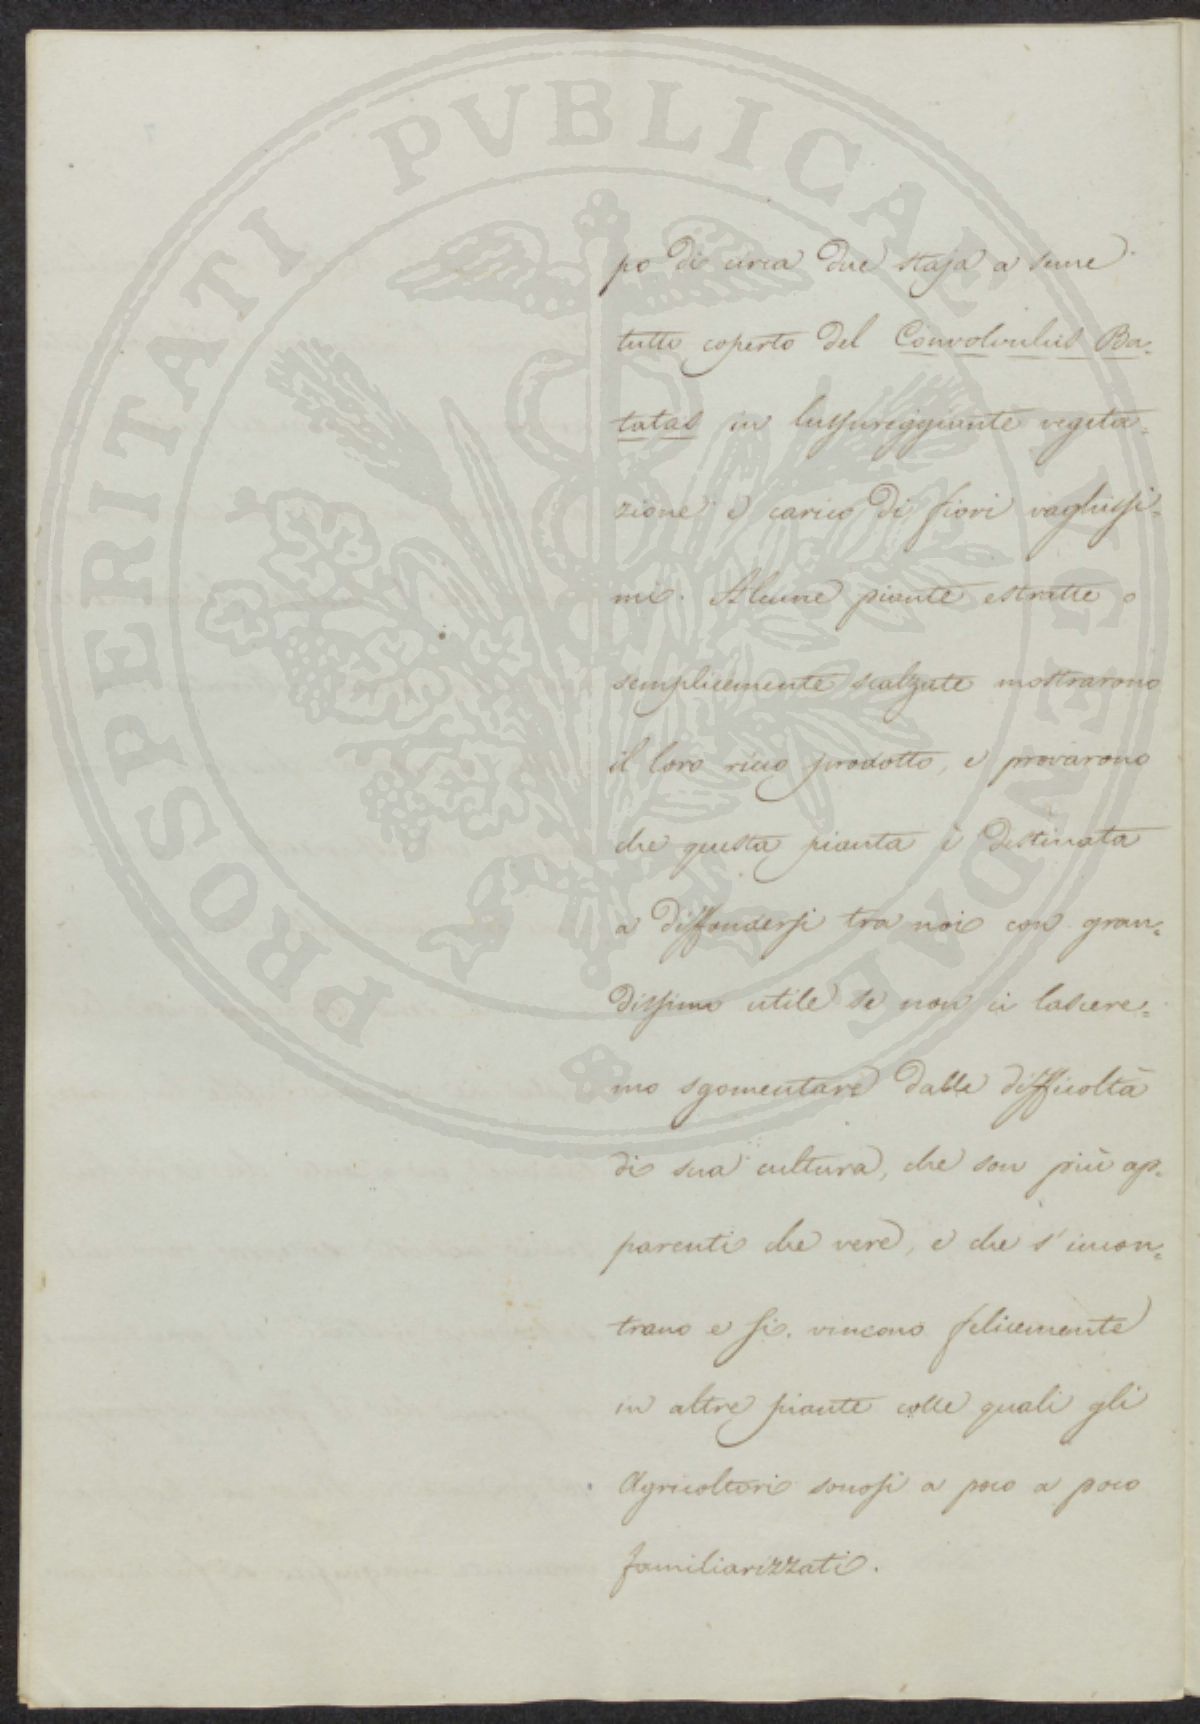 PROSPERITATI PVBLICAE AVGENDAE
po di circa due staja a seme
tutto coperto del Convolvulus Ba=
tatas in lussureggiante vegeta=
zione e carico di fiori vaghissi=
mi. Alcune piante estratte o
semplicemente scalzate mostrarono
il loro ricco prodotto, e provarono
che questa pianta è destinata
a diffondersi tra noi con gran=
dissimo utile se non ci lascere=
mo sgomentare dalle difficoltà
di sua cultura, che son più ap=
parenti che vere, e che s'incon=
trano e si vincono felicemente
in altre piante colle quali gli
Agricoltori sonosi a poco a poco
familiarizzati.